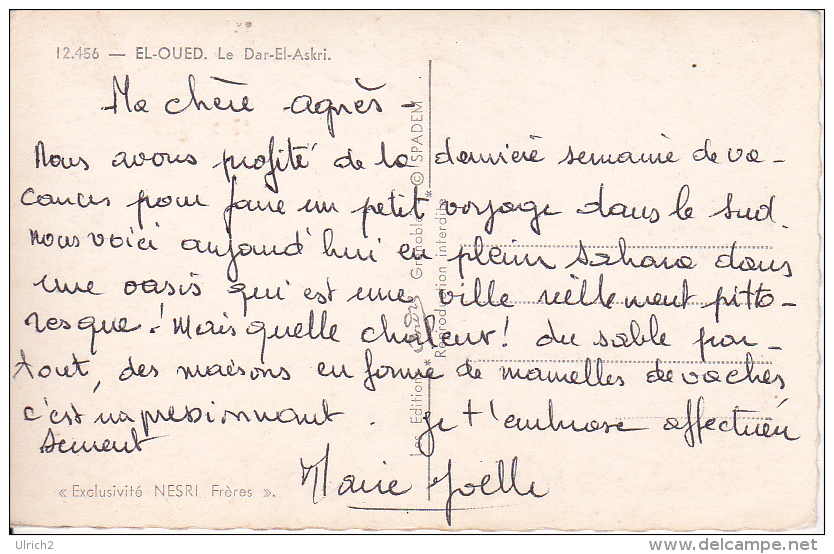 12.456 — EL-OUED. Le Dar-El-Askri.
Ma chère agnès -
Nous avons profité de la dernière semaine de va-
cances pour faire un petit voyage dans le Sud.
Nous voici aujourd'hui en plein Sahara dans
une oasis qui est une ville réellement pitto-
resque! Mais quelle chaleur! du sable par-
tout, des maisons en forme de mamelles de vaches
c'est impressionnant. Je t'embrasse affectueu
sement
Marie Joëlle
« Exclusivité NESRI Frères ».
Les Editions Grenoble * © SPADEM
Reproduction interdite
Ulrich2
http://www.delcampe.net